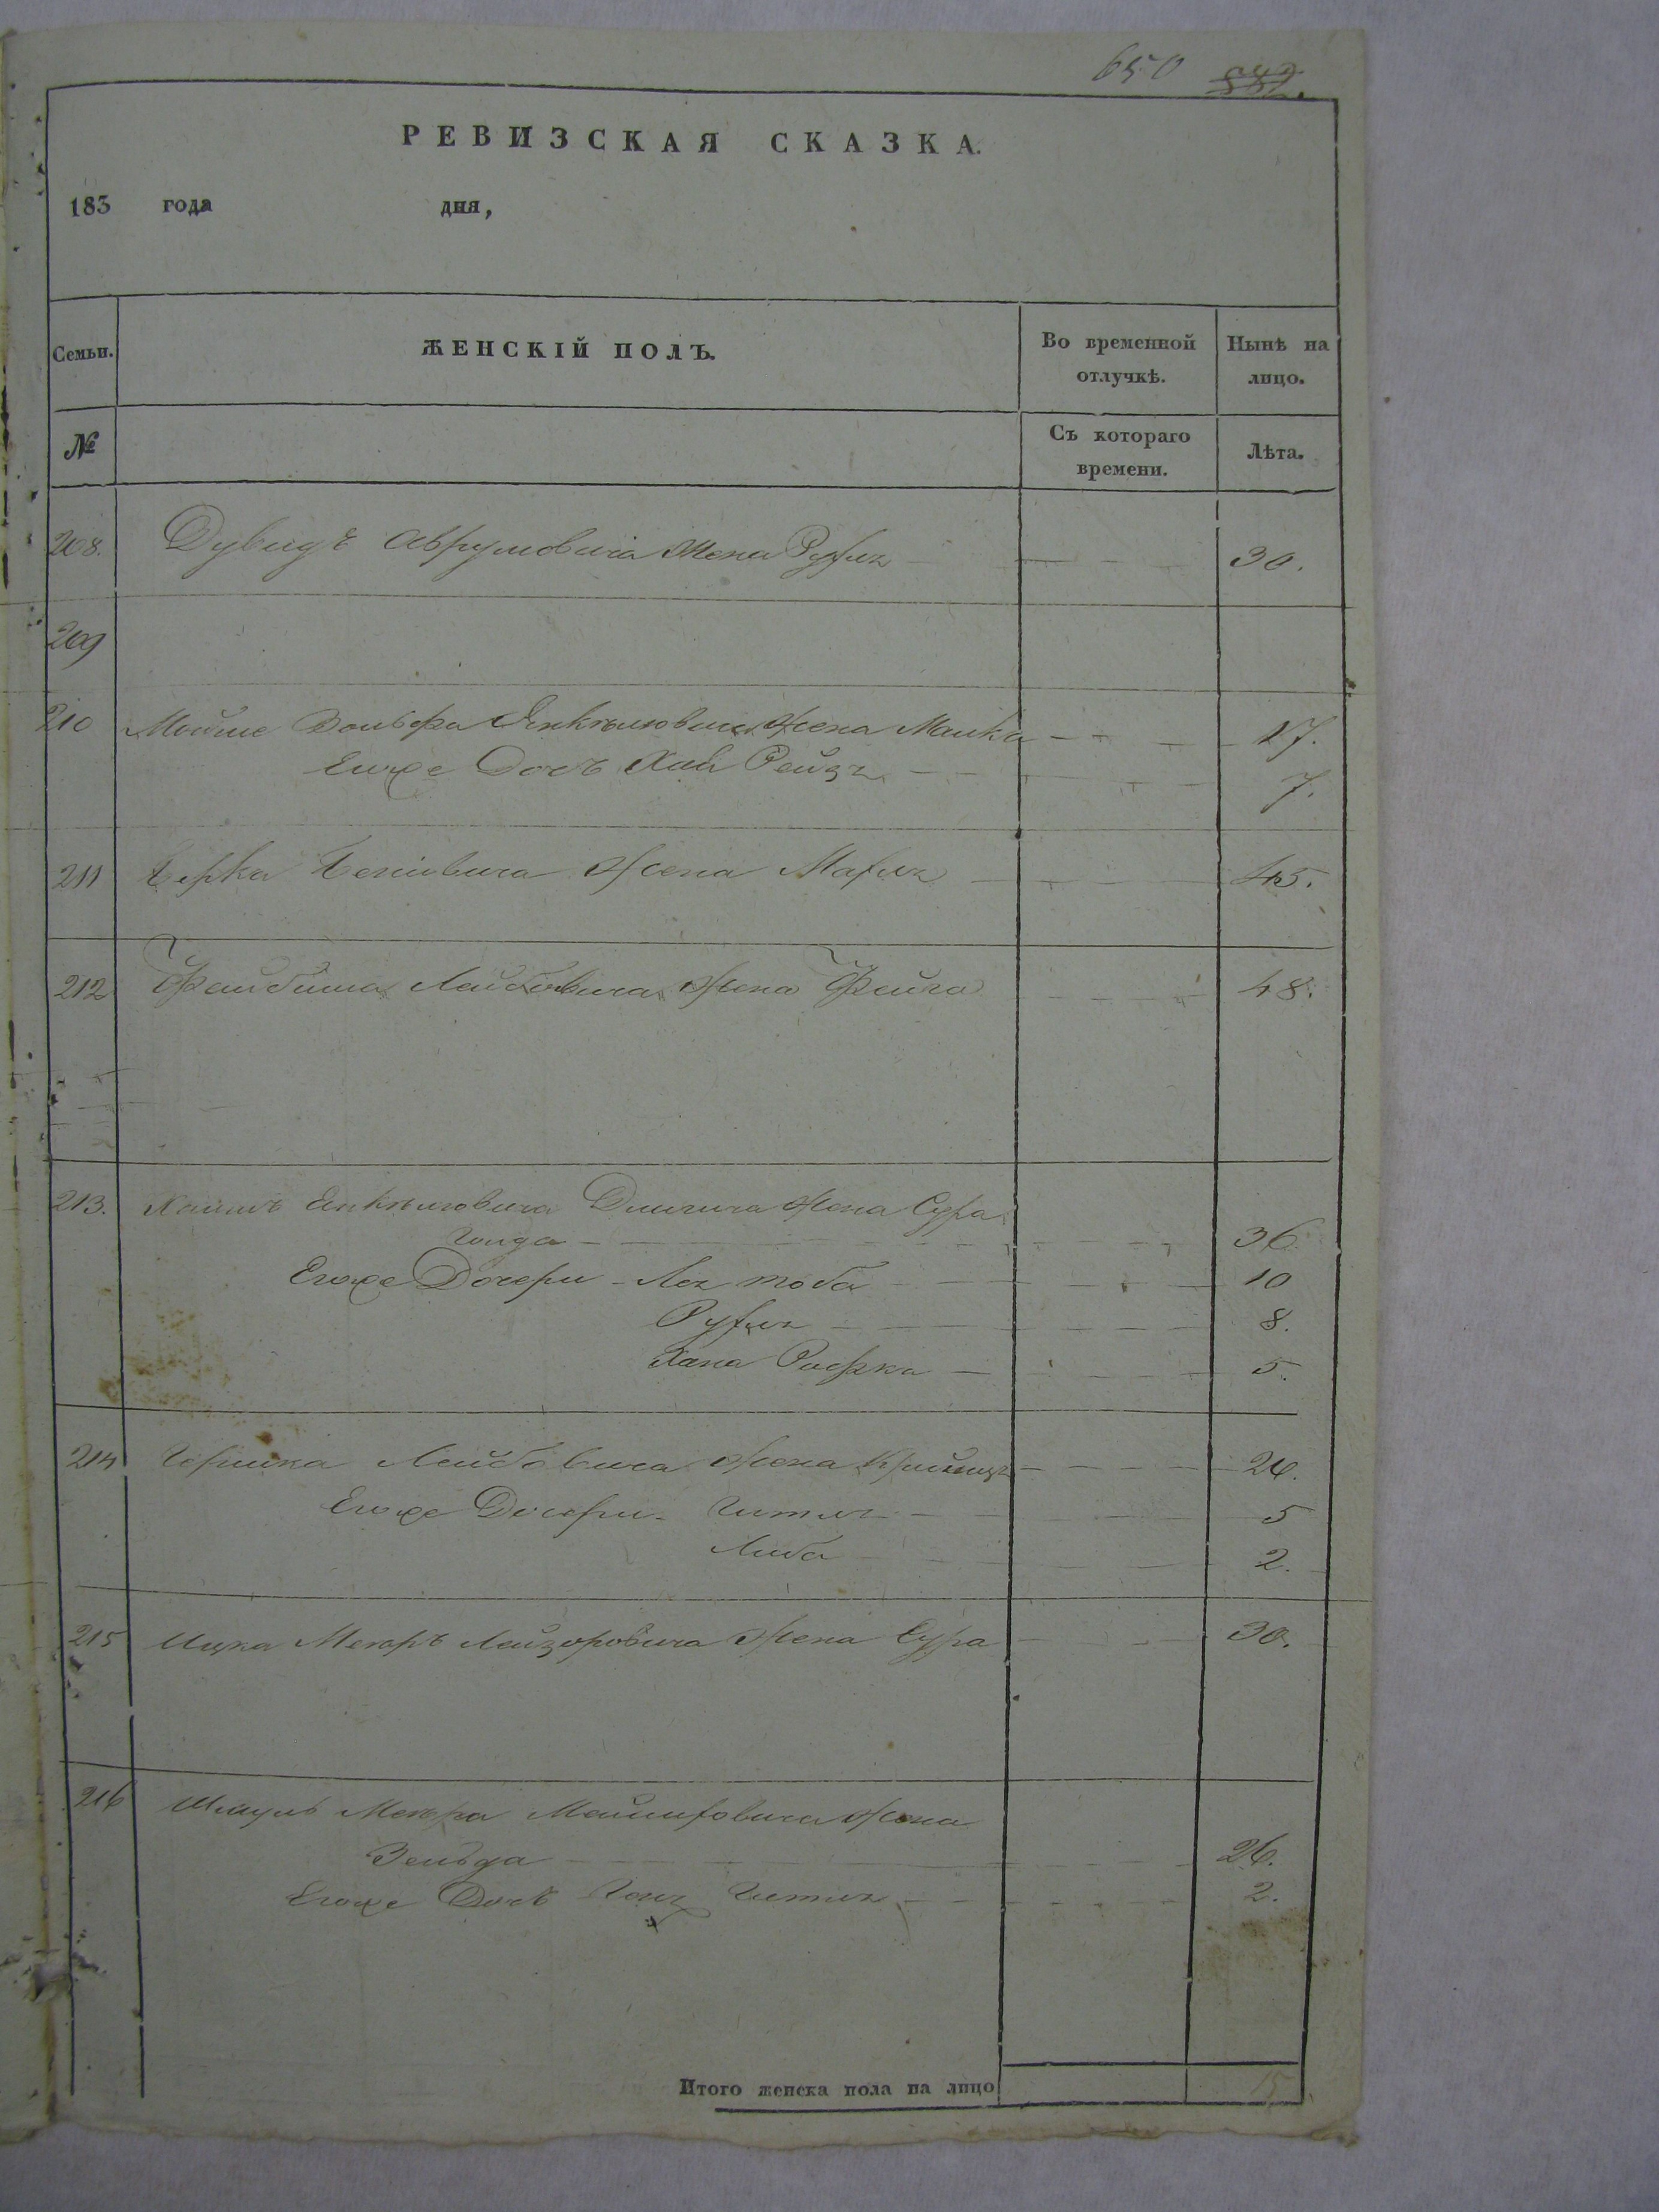 650 882.
РЕВИЗСКАЯ СКАЗКА.
183 года дня,
Семьи. ЖЕНСКІЙ ПОЛЪ. Во временной отлучкѣ. Нынѣ на лицо.
№ Съ котораго времени. Лѣта.
208. Дувидъ Аврумовича Жена Рухля 30.
209
210 Мойше Вольфа Янкелювича Жена Малка 27.
Егоже Дочь Хая Рейзя 7.
211 Берка Беніовича Жена Махля 45.
212 Файбиша Лейбовича Жена Фейга 48.
213. Хаимъ Янкелювича Жена Сура
Голда 36
Егоже Дочери Лея Тоба 10
Рухля 8.
Хана Рифка 5.
214 Гершка Лейбовича Жена 26.
Егоже Дочери Гитля 5
Либа 2.
215 Ицка Мееръ Лейзоровича Жена Сура 30.
216 Шмуль Меера Жена
Зельда 26.
Егоже Дочь Геня Гитля 2.
Итого женска пола на лицо 15